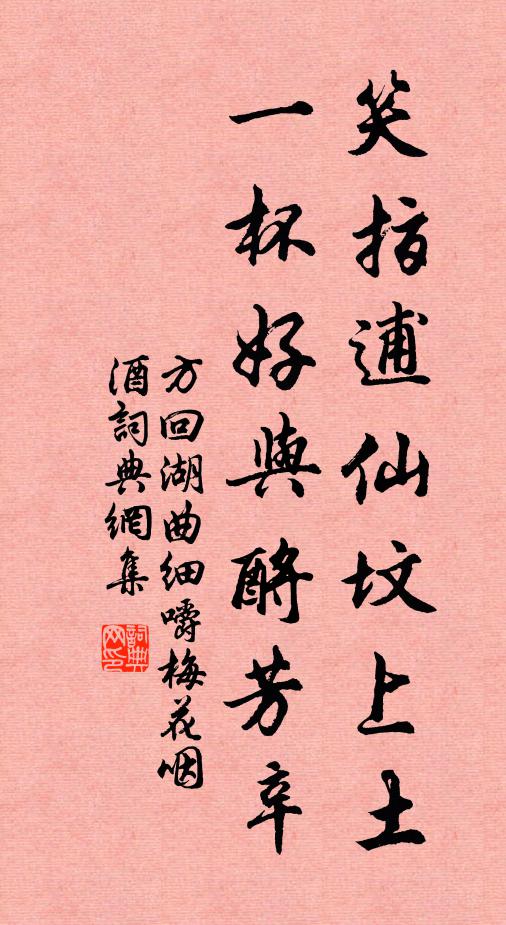 笑指逋仙坟上土
一杯好與酹芳辛
方回湖曲细嚼梅花咽
酒詞典網集
詞典
网印